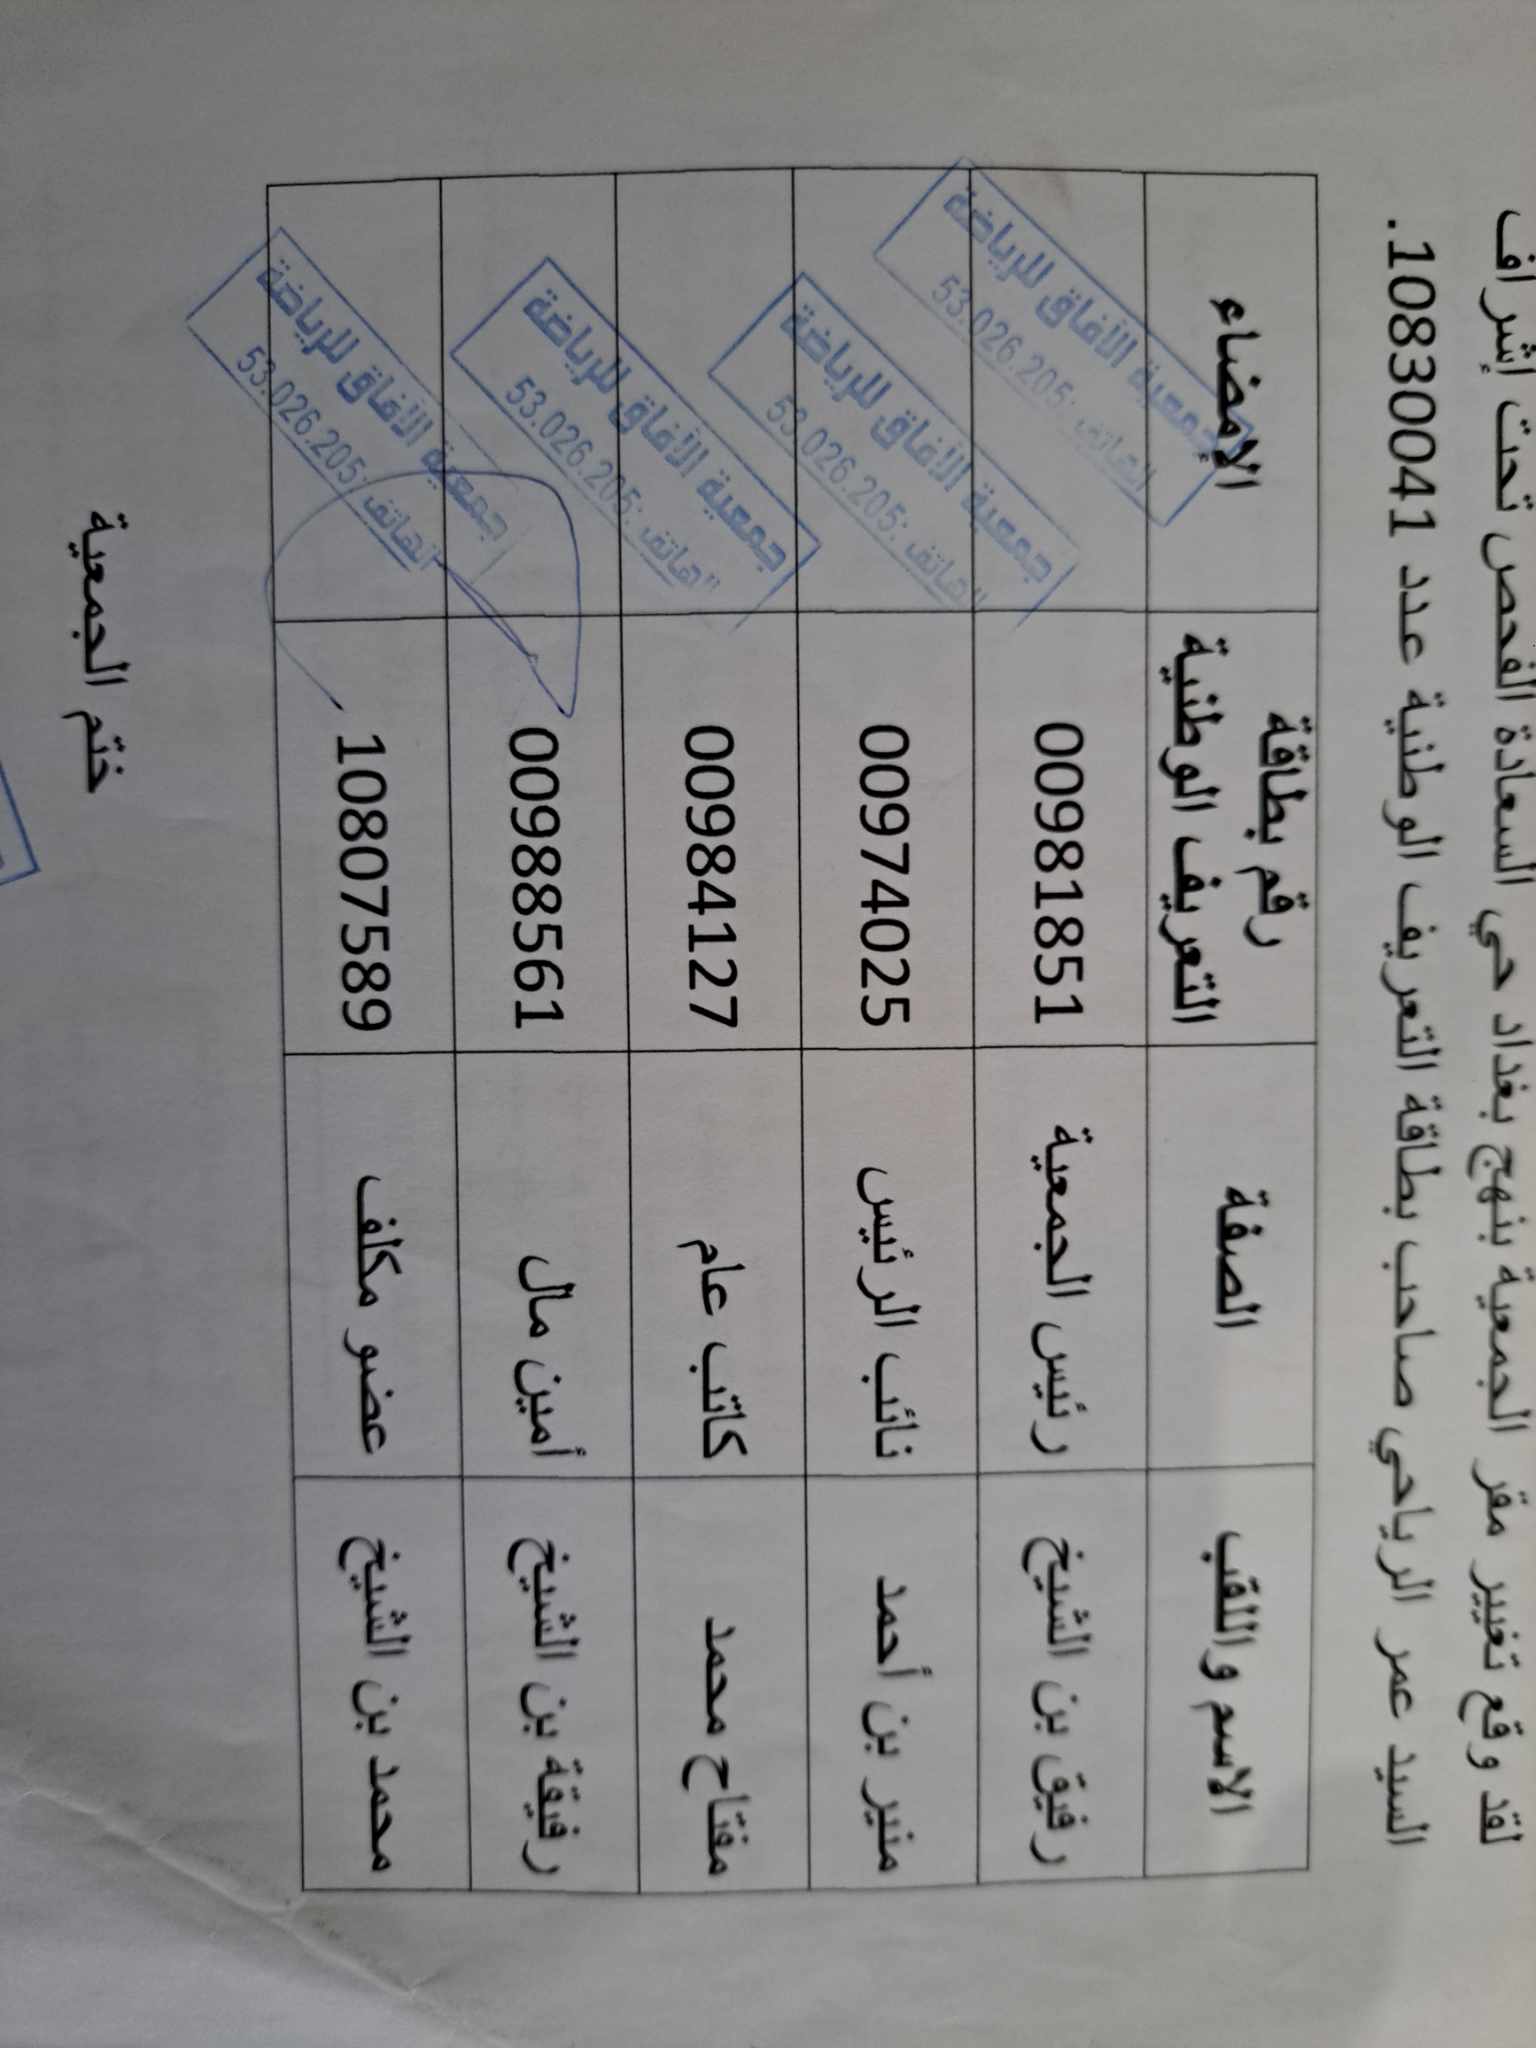 لقد وقع تغيير مقر الجمعية بنهج بغداد حي السعادة الفحص تحت إشراف
السيد عمر الرياحي صاحب بطاقة التعريف الوطنية عدد 10830041.
الاسم واللقب الصفة رقم بطاقة التعريف الوطنية الإمضاء
رفيق بن الشيخ رئيس الجمعية 00981851
جمعية الآفاق للرياضة
الهاتف :53.026.205
منير بن أحمد نائب الرئيس 00974025
جمعية الآفاق للرياضة
الهاتف :53.026.205
مفتاح محمد كاتب عام 00984127
جمعية الآفاق للرياضة
الهاتف :53.026.205
رفيقة بن الشيخ أمين مال 00988561
جمعية الآفاق للرياضة
الهاتف :53.026.205
محمد بن الشيخ عضو مكلف 10807589
ختم الجمعية